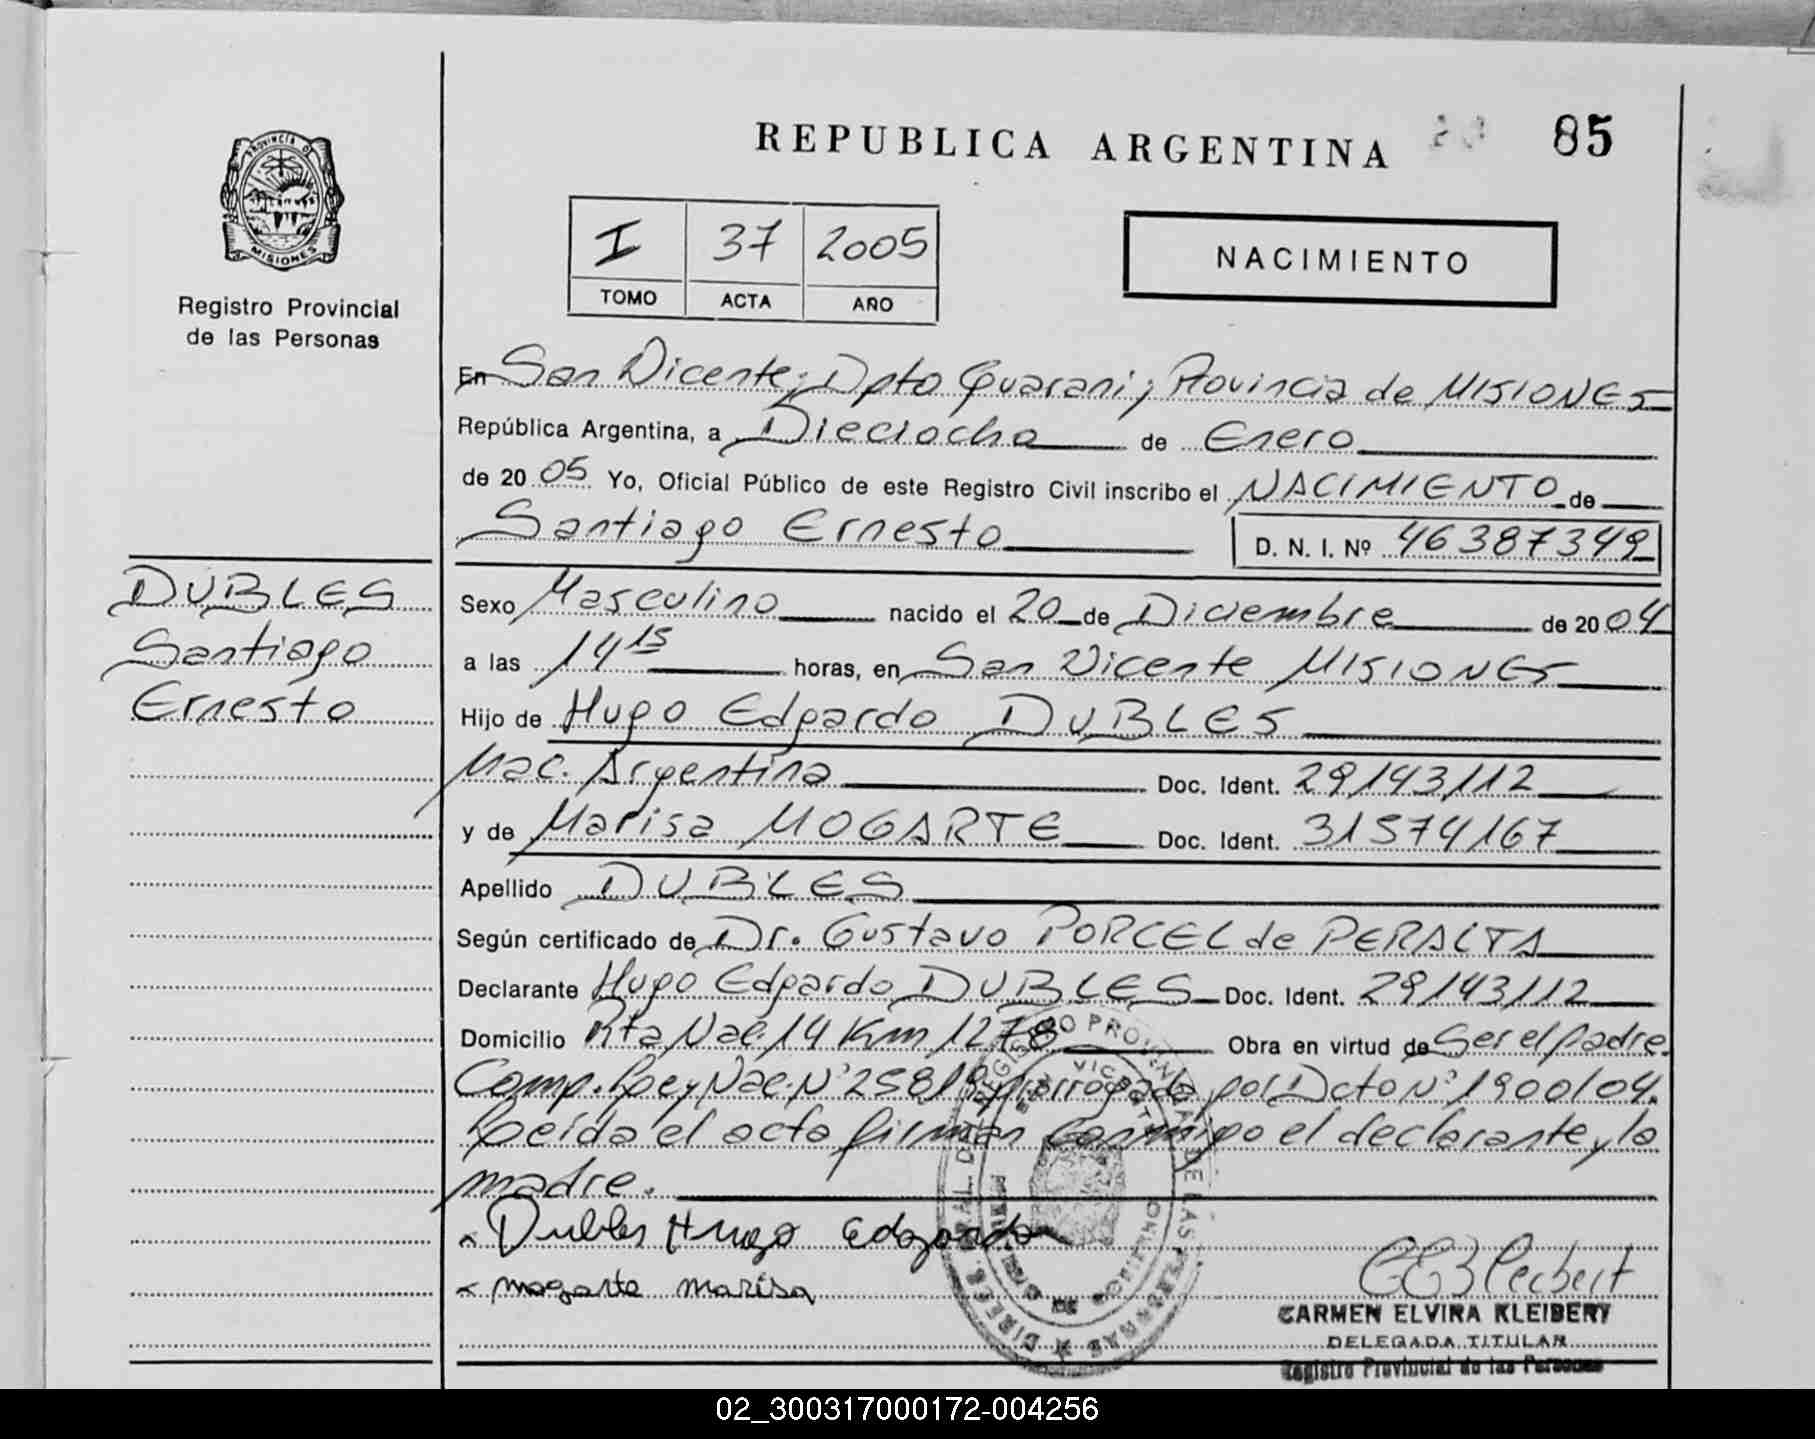 REPUBLICA ARGENTINA
85
PROVINCIA D
MISIONES
Registro Provincial
de las Personas
I 37 2005
TOMO ACTA AÑO
NACIMIENTO
En San Vicente; Dpto Guarani; Provincia de MISIONES
República Argentina, a Dieciocho de Enero
de 2005 Yo, Oficial Público de este Registro Civil inscribo el NACIMIENTO de
Santiago Ernesto D. N. I. Nº 46387349
DUBLES
Santiago
Ernesto
Sexo Masculino nacido el 20 de Diciembre de 2004
a las 14 15 horas, en San Vicente MISIONES
Hijo de Hugo Edgardo DUBLES
Nac. Argentina Doc. Ident. 29,143,112
y de Marisa MOGARTE Doc. Ident. 31574167
Apellido DUBLES
Según certificado de Dr. Gustavo PORCEL de PERALTA
Declarante Hugo Edgardo DUBLES Doc. Ident. 29,143,112
Domicilio Rta Nac. 14 Km 1278 Obra en virtud de Ser el padre.
Comp. Ley Nac. Nº 25819 prorrogada por Dcto Nº 1900/04.
Leída el acta firman conmigo el declarante y la
madre.
Dubles Hugo Edgardo
mogarte marisa
CARMEN ELVIRA KLEIBERT
DELEGADA TITULAR
Registro Provincial de las Personas
02_300317000172-004256